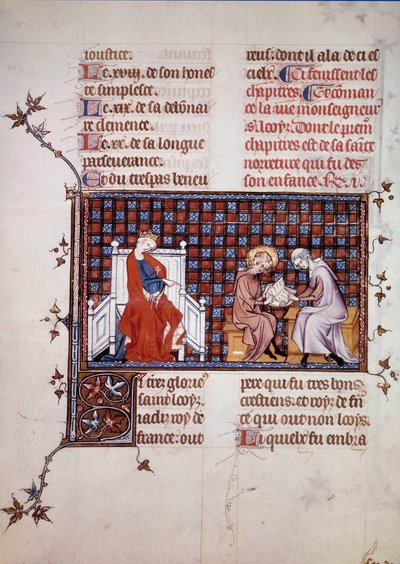 ioustice.
Le .xviij. de son hones
te simplesce.
Le .xix. de sa debonai
re clemence.
Le .xx. de sa longue
perseuerance.
Et du trespas beneu
reus. dont il a la de ci es
ciex. Ci fenissent les
chapitres. Et coman
ce la uie monseigneur
s. looys. Dont le premi
chapitres est de sa sainte
norreture qui fu des
son enfance.
Li tres glorieus
saint looys
iadis roy de
france. out
pere qui fu tres bons
crestiens. et roy de fran
ce qui out non looys.
Li quelx fu en bra